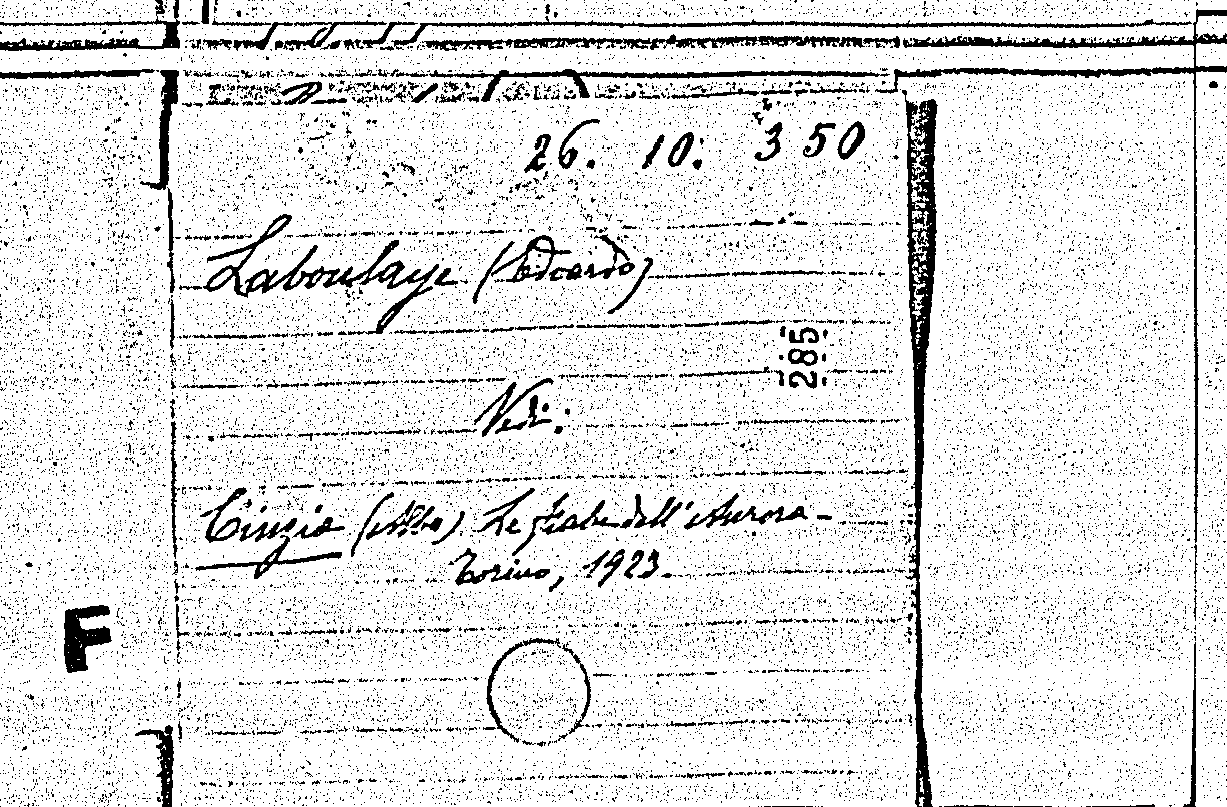 26. 10. 350
Laboulaye (Edoardo)
285
Vedi:
Cinzia (Alba) Le fiabe dell'Aurora -
Torino, 1923.
F